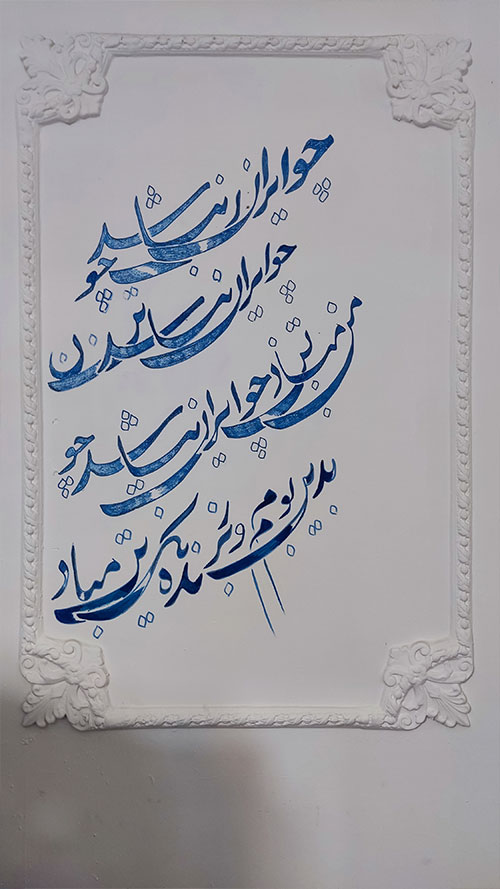 چو ایران نباشد چو
چو ایران نباشد تن
من مباد چو ایران نباشد چو
بدین بوم و بر زنده یک تن مباد